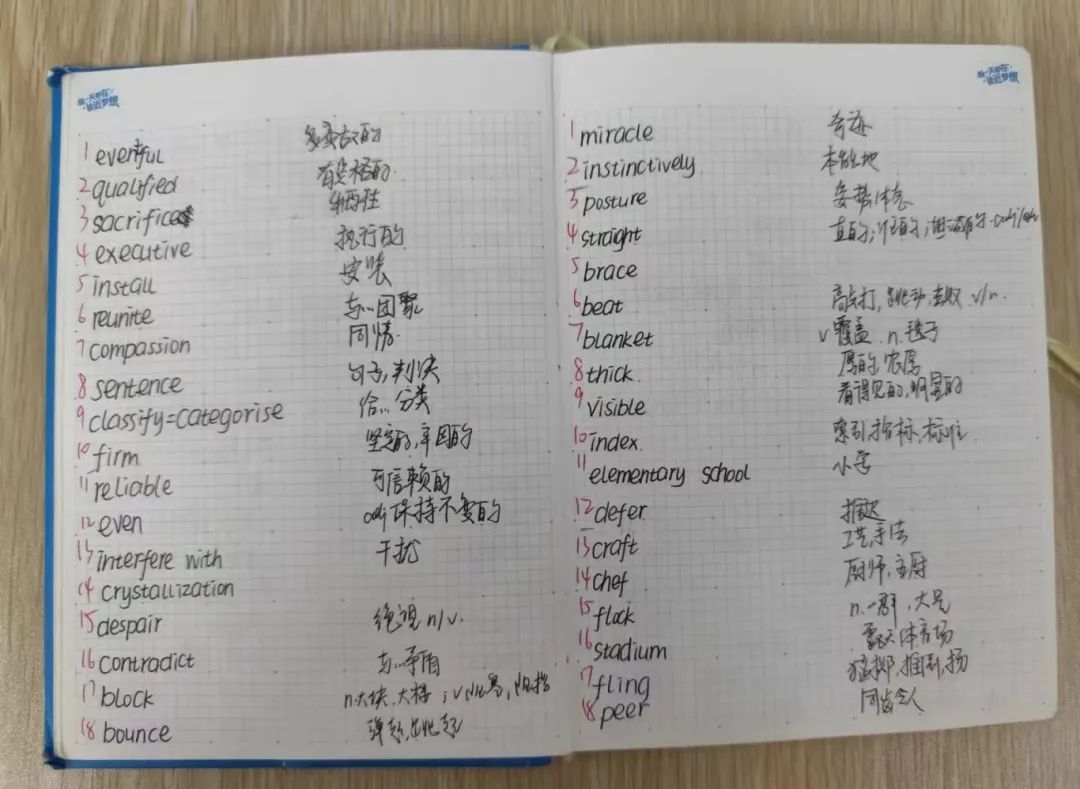 每一天都在
接近梦想
1 eventful 多变故的
2 qualified 有资格的
3 sacrifice 牺牲
4 executive 执行的
5 install 安装
6 reunite 与…团聚
7 compassion 同情
8 sentence 句子,判决
9 classify=categorise 给…分类
10 firm 坚定的,牢固的
11 reliable 可信赖的
12 even adj 保持不变的
13 interfere with 干扰
14 crystallization
15 despair 绝望 n/v.
16 contradict 与…矛盾
17 block n.大块,大楼;v.
18 bounce 弹起,跳起
接近梦想
1 miracle 奇迹
2 instinctively 本能地
3 posture 姿势,体态
4 straight 直的;
5 brace
6 beat 敲打,跳动, v/n.
7 blanket v 覆盖 n.毯子
8 thick 厚的,浓厚
9 visible 看得见的,明显的
10 index 索引,指标,标准
11 elementary school 小学
12 defer 推迟
13 craft 工艺,手法
14 chef 厨师,主厨
15 flock n.一群,大量
16 stadium 露天体育场
17 fling 猛掷,扬
18 peer 同龄人